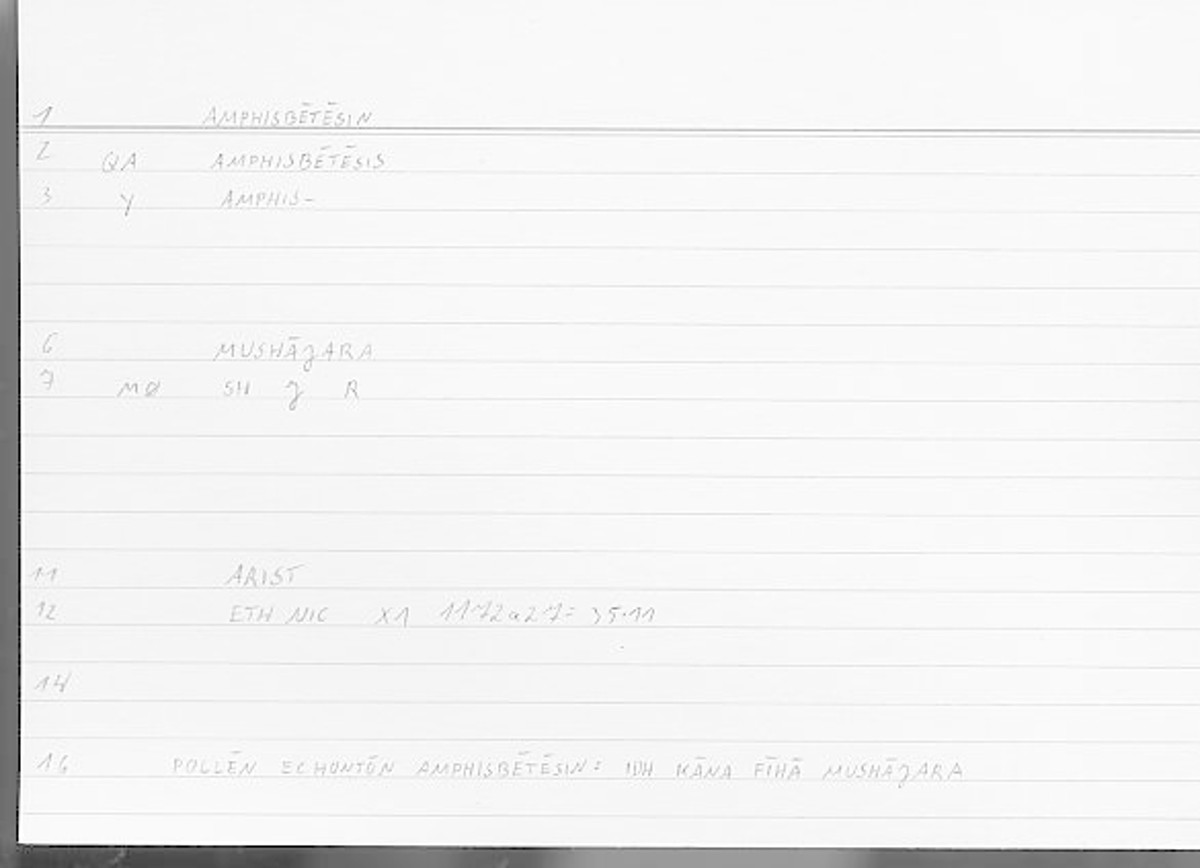 1 AMPHISBĒTĒSIN
2 QA AMPHISBĒTĒSIS
3 Y AMPHIS-
6 MUSHĀǧARA
7 MØ SH ǧ R
11 ARIST
12 ETH NIC X1 1172a27= 35.11
14
16 POLLĒN ECHONTŌN AMPHISBĒTĒSIN: IDH KĀNA FĪHĀ MUSHĀǧARA